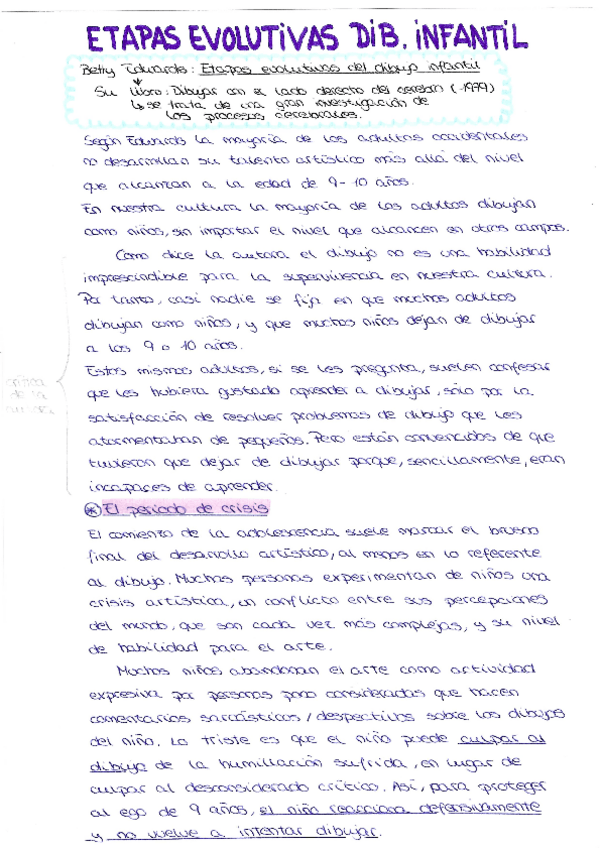 ETAPAS EVOLUTIVAS DIB. INFANTIL
Betty Edwards: Etapas evolutivas del dibujo infantil
Su libro: Dibujar con el lado derecho del cerebro (-1979)
↳ se trata de una gran investigación de
los procesos cerebrales.
Según Edwards la mayoría de los adultos occidentales
no desarrollan su talento artístico más allá del nivel
que alcanzan a la edad de 9-10 años.
En nuestra cultura la mayoría de los adultos dibujan
como niños, sin importar el nivel que alcancen en otros campos.
Como dice la autora el dibujo no es una habilidad
imprescindible para la supervivencia en nuestra cultura.
Por tanto, casi nadie se fija en que muchos adultos
dibujan como niños, y que muchos niños dejan de dibujar
a los 9 o 10 años.
Estos mismos adultos, si se les pregunta, suelen confesar
que les hubiera gustado aprender a dibujar, sólo por la
satisfacción de resolver problemas de dibujo que les
atormentaban de pequeños. Pero están convencidos de que
tuvieron que dejar de dibujar porque, sencillamente, eran
incapaces de aprender.
crítica
de la
* El periodo de crisis
El comienzo de la adolescencia suele marcar el brusco
final del desarrollo artístico, al menos en lo referente
al dibujo. Muchas personas experimentan de niños una
crisis artística, un conflicto entre sus percepciones
del mundo, que son cada vez más complejas, y su nivel
de habilidad para el arte.
Muchos niños abandonan el arte como actividad
expresiva por personas poco consideradas que hacen
comentarios sarcásticos / despectivos sobre los dibujos
del niño. Lo triste es que el niño puede culpar al
dibujo de la humillación sufrida, en lugar de
culpar al desconsiderado crítico. Así, para proteger
al ego de 9 años, el niño reacciona defensivamente
y no vuelve a intentar dibujar.